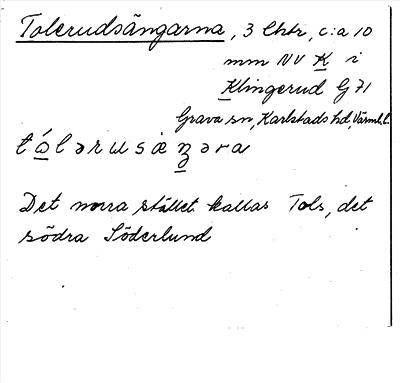 Tolerudsängarna, 3 lhtr, c:a 10
mm NV K i
Klingerud G 71
Grava sn, Karlstads hd, Värml. l.
tɷ́lərɯsæŋəra
Det norra stället kallas Tols, det
södra Söderlund